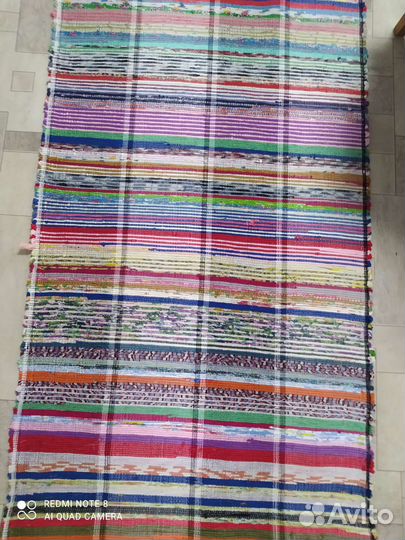 REDMI NOTE 8
AI QUAD CAMERA
Avito